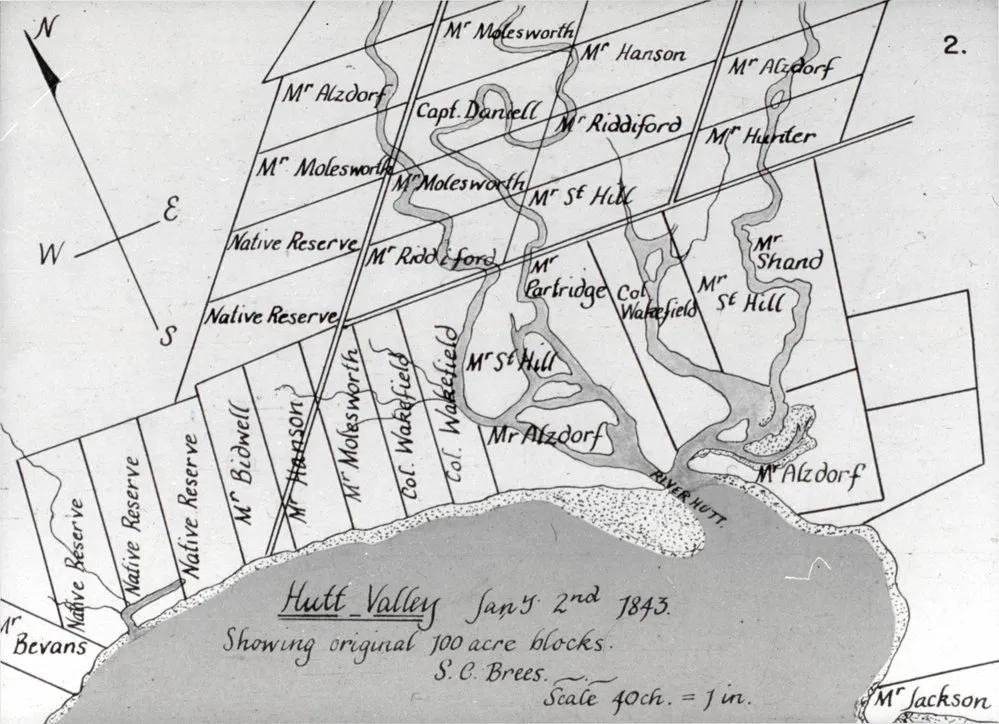 N
2.
Mr Molesworth
Mr Hanson
Mr Alzdorf
Mr Alzdorf
Capt. Daniell
Mr Riddiford
Mr Hunter
Mr Molesworth
Mr Molesworth
Mr St Hill
E
W
S
Native Reserve
Mr Riddiford
Mr
Partridge
Mr
Shand
Col
Wakefield
Mr
St Hill
Native Reserve
Mr St Hill
Native Reserve
Native Reserve
Native Reserve
Mr Bidwell
Mr Hanson
Mr Molesworth
Col. Wakefield
Col. Wakefield
Mr Alzdorf
Mr Alzdorf
RIVER HUTT.
Hutt Valley Jany. 2nd 1843.
Showing original 100 acre blocks.
S. C. Brees.
Scale 40ch. = 1 in.
Mr
Bevans
Mr Jackson